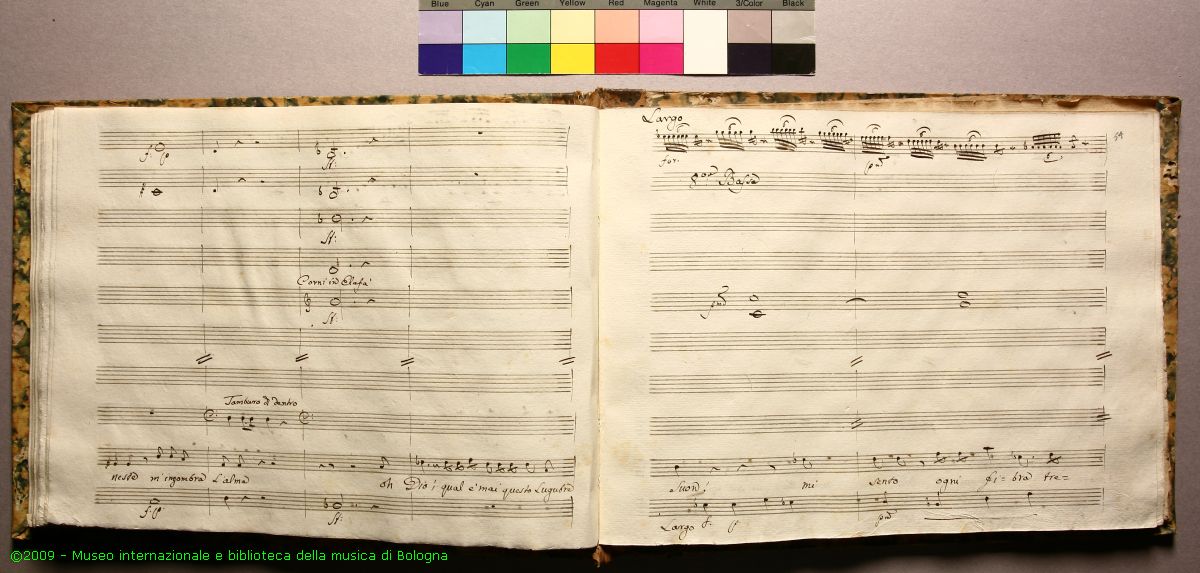 Blue Cyan Green Yellow Red Magenta White 3/Color Black
f. p
sf:
sf:
Corni in Elafà
sf:
Tamburo di dentro
nesta m'ingombra L'alma oh Dio! qual è mai questo Lugubre
f. p. sf:
Largo
54
for.
Bassi
Suon! mi sento ogni fi=bra tre=
Largo f. p
©2009 - Museo internazionale e biblioteca della musica di Bologna